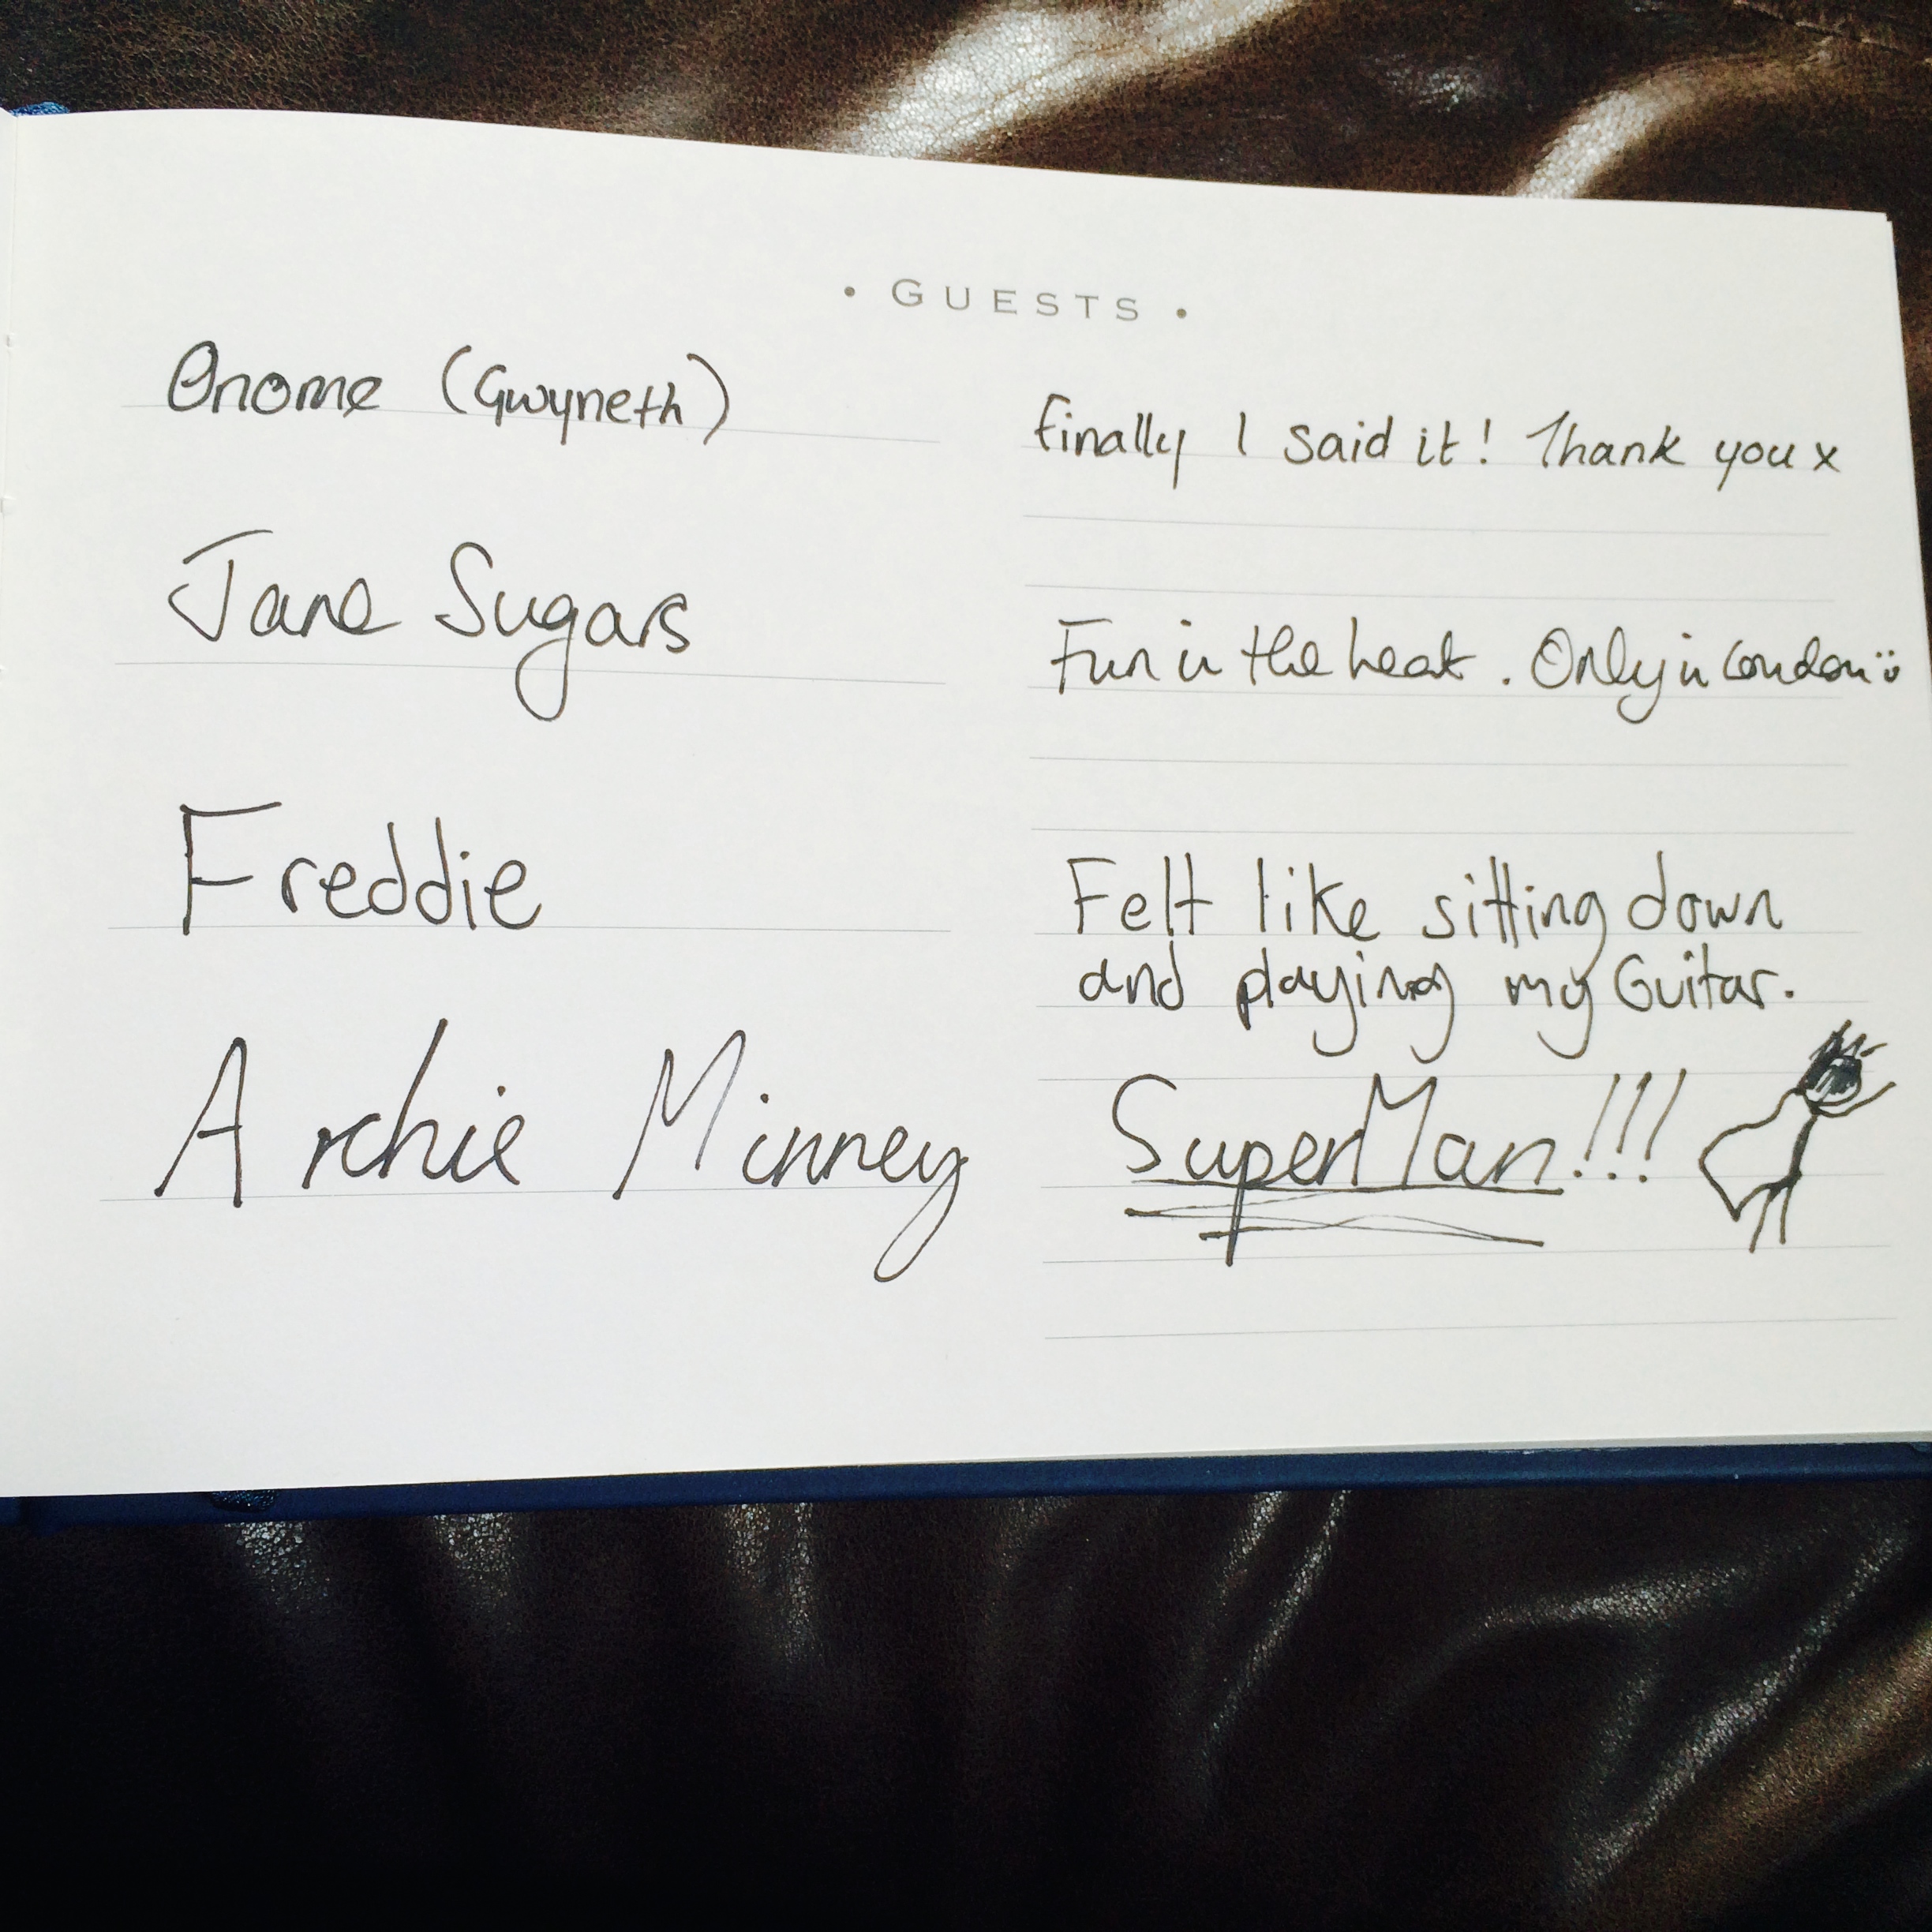 • GUESTS •
Onome (Gwyneth)
finally I said it! Thank you x
Jane Sugars
Fun in the heat. Only in London :)
Freddie
Felt like sitting down
and playing my Guitar.
Archie Minney
SuperMan!!!